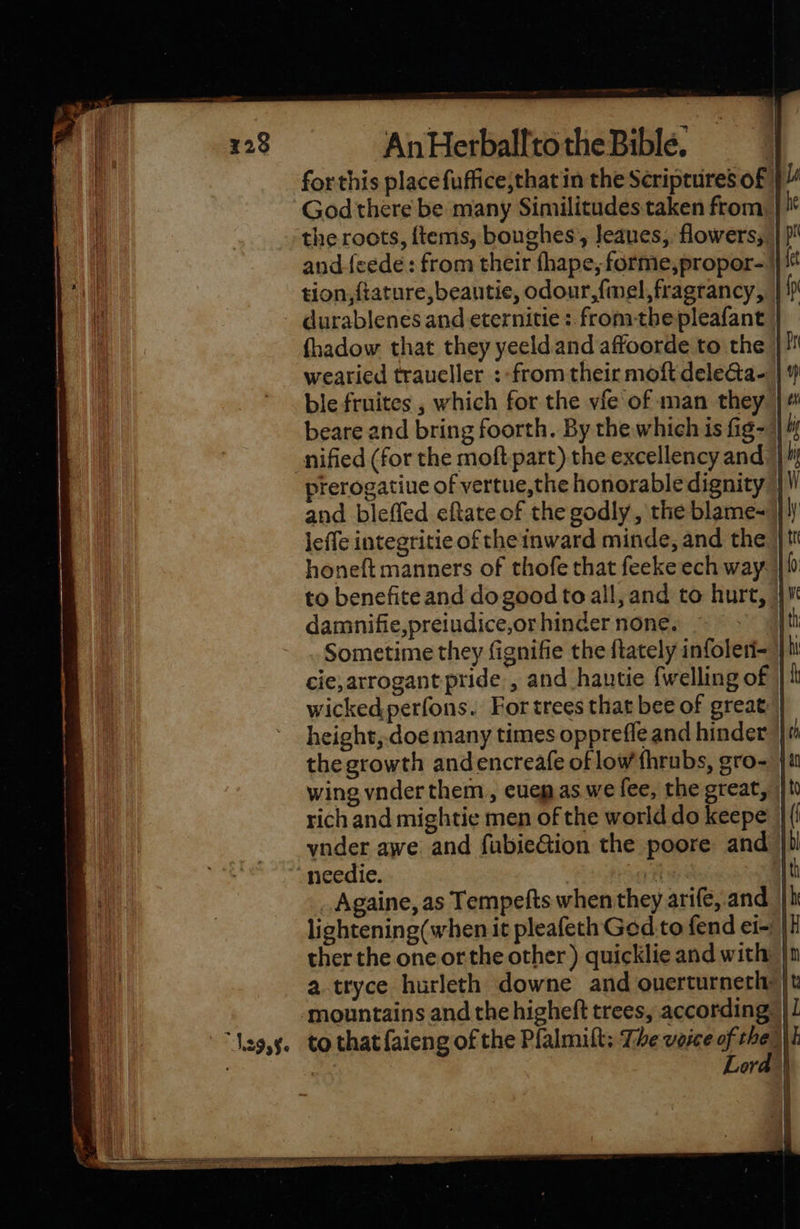 128 An Herball to the Bible.
for this place suffice, that in the Scriptures of
God there be many Similitudes taken from
the roots, stems, boughes, leaues, flowers,
and seede: from their shape, forme, propor-
tion, stature, beautie, odour, smel, fragrancy,
durablenes and eternitie: from the pleasant
shadow that they yeeld and affoorde to the
wearied traueller: from their most delecta-
ble fruites, which for the vse of man they
beare and bring foorth. By the which is sig-
nified (for the most part) the excellency and
prerogatiue of vertue, the honorable dignity
and blessed estate of the godly, the blame-
lesse integritie of the inward minde, and the
honest manners of those that seeke ech way
to benefite and do good to all, and to hurt,
damnifie, preiudice, or hinder none.
Sometime they signifie the stately insolen-
cie, arrogant pride, and hautie swelling of
wicked persons. For trees that bee of great
height, doe many times oppresse and hinder
the growth and encrease of low shrubs, gro-
wing vnder them, euen as we see, the great,
rich and mightie men of the world do keepe
vnder awe and subiection the poore and
needie.
Againe, as Tempests when they arise, and
lightening (when it pleaseth God to send ei-
ther the one or the other) quicklie and with
a tryce hurleth downe and ouerturneth
mountains and the highest trees, according
l.29,5. to that saieng of the Psalmist: The voice of the
Lord